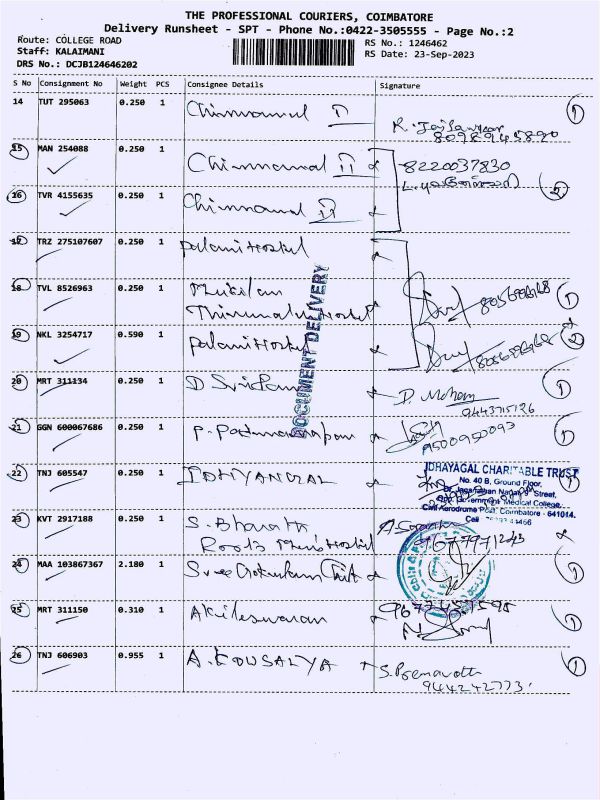 THE PROFESSIONAL COURIERS, COIMBATORE
Delivery Runsheet - SPT - Phone No.:0422-3505555 - Page No.:2
Route: COLLEGE ROAD
Staff: KALAIMANI
DRS No.: DCJB124646202
RS No.: 1246462
RS Date: 23-Sep-2023
S No Consignment No Weight PCS Consignee Details Signature
14 TUT 295063 0.250 1 Chinnamal II
8098945890
1
15 MAN 254088 0.250 1 Chinnamal II
8220037830
16 TVR 4155635 0.250 1 Chinnamal II
2
17 TRZ 275107607 0.250 1 Palani Hostel
18 TVL 8526963 0.250 1
Thirumalai Hostel
1
19 NKL 3254717 0.590 1 Palani Hostel
2
20 MRT 311134 0.250 1 D Sridar D. Mohan
1
21 GGN 600067686 0.250 1 P.
9500950093
1
22 TNJ 605547 0.250 1 IDHYANGAL
IDHAYAGAL CHARITABLE TRUST
No. 40 B, Ground Floor,
Street,
Opp. Government Medical College,
Civil Aerodrome Post, Coimbatore - 641014.
Cell
23 KVT 2917188 0.250 1 S. Bharath
Roots Hostel
9677971243
24 MAA 103867367 2.180 1 Sree Gokulam Chit
1
25 MRT 311150 0.310 1 Akileswaran
1
26 TNJ 606903 0.955 1 A. KOUSALYA S. Premavathi
9442242773
1
DOCUMENT DELIVERY